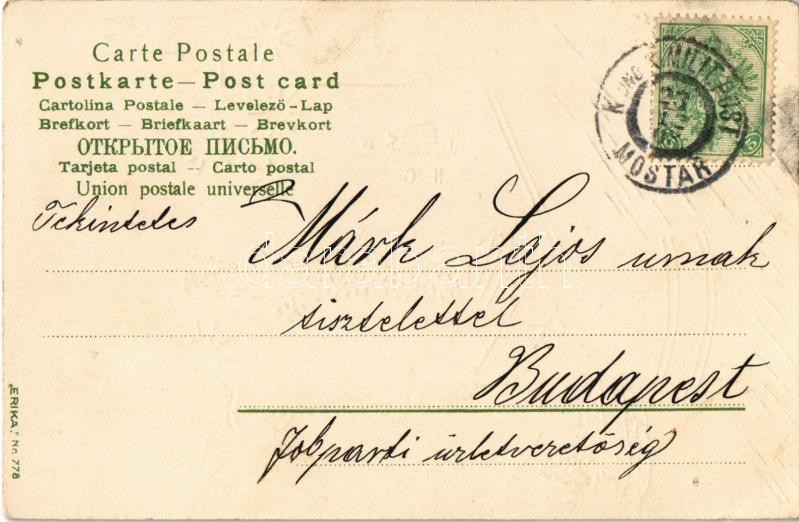 Carte Postale
Postkarte — Post card
Cartolina Postale — Levelezö-Lap
Brefkort — Briefkaart — Brevkort
ОТКРЫТОЕ ПИСЬМО.
Tarjeta postal — Carto postal
Union postale universelle
K. UND K. MILIT. POST
MOSTAR
5
Tekintetes
Márk Lajos urnak
tisztelettel
Budapest
Jobparti üzletvezetőség
„ERIKA." Nr. 778
darabanth